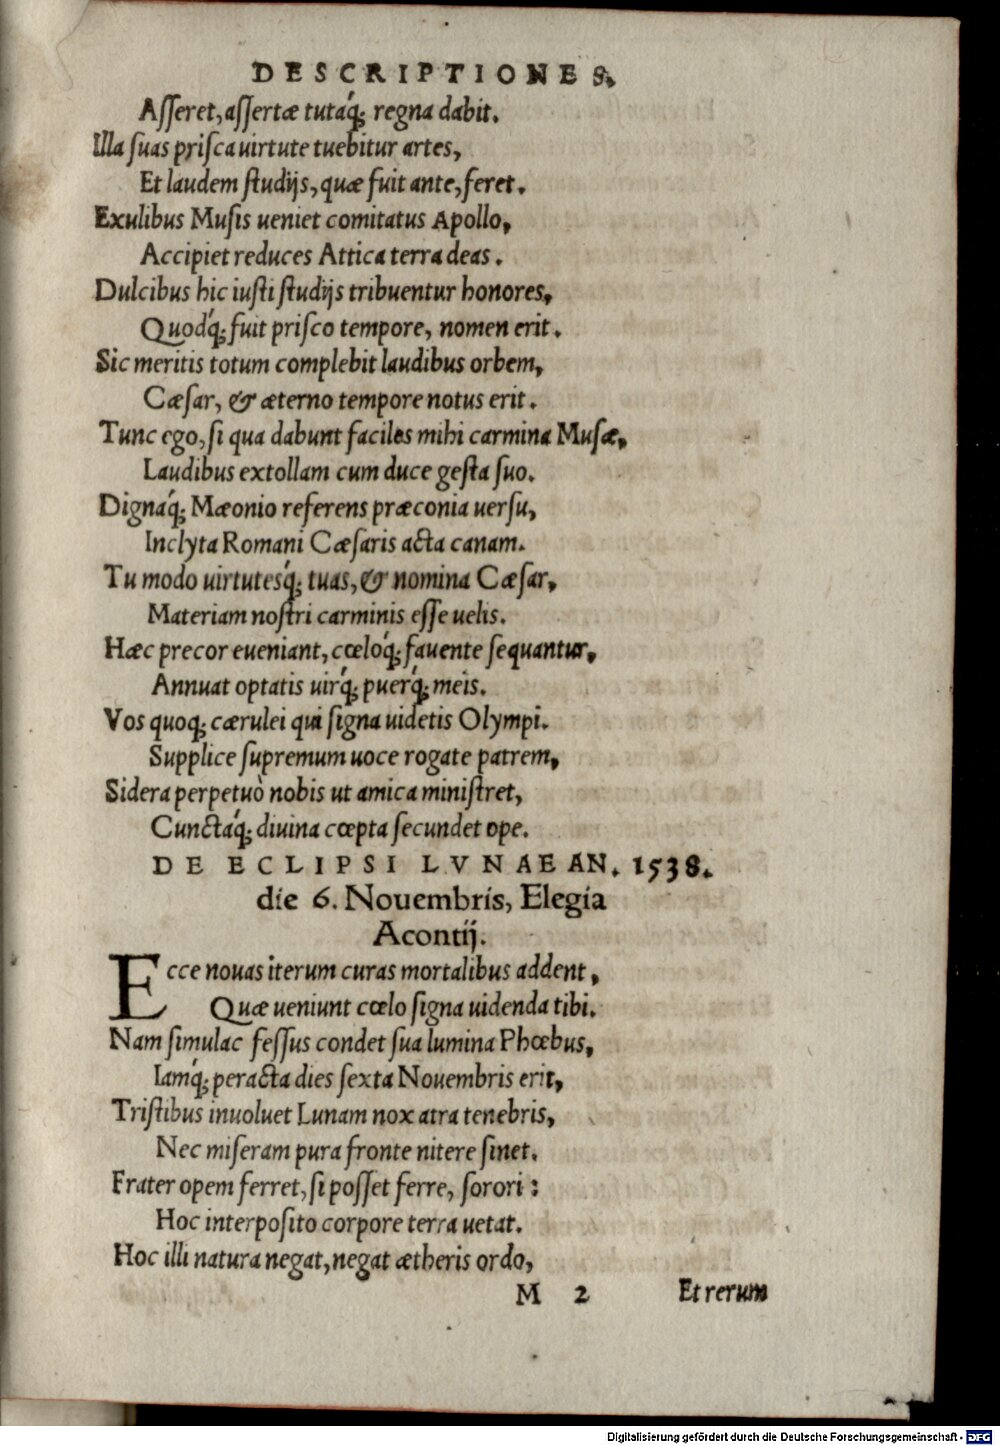 DESCRIPTIONES.
Aſſeret, aſſertæ tutaq́; regna dabit.
Illa ſuas priſca uirtute tuebitur artes,
Et laudem ſtudijs, quæ fuit ante, feret.
Exulibus Muſis ueniet comitatus Apollo,
Accipiet reduces Attica terra deas.
Dulcibus hic iuſti ſtudijs tribuentur honores,
Quodq́; fuit priſco tempore, nomen erit.
Sic meritis totum complebit laudibus orbem,
Cæſar, & æterno tempore notus erit.
Tunc ego, ſi qua dabunt faciles mihi carmina Muſæ,
Laudibus extollam cum duce geſta ſuo.
Dignaq́; Mæonio referens præconia uerſu,
Inclyta Romani Cæſaris acta canam.
Tu modo uirtutesq́; tuas, & nomina Cæſar,
Materiam noſtri carminis eſſe uelis.
Hæc precor eueniant, cœloq́; fauente ſequantur,
Annuat optatis uirq́; puerq́; meis.
Vos quoq; cærulei qui ſigna uidetis Olympi.
Supplice ſupremum uoce rogate patrem,
Sidera perpetuò nobis ut amica miniſtret,
Cunctaq́; diuina cœpta ſecundet ope.
DE ECLIPSI LVNAE AN. 1538.
die 6. Nouembris, Elegia
Acontij.
Ecce nouas iterum curas mortalibus addent,
Quæ ueniunt cœlo ſigna uidenda tibi.
Nam ſimulac feſſus condet ſua lumina Phœbus,
Iamq́; peracta dies ſexta Nouembris erit,
Triſtibus inuoluet Lunam nox atra tenebris,
Nec miſeram pura fronte nitere ſinet.
Frater opem ferret, ſi poſſet ferre, ſorori:
Hoc interpoſito corpore terra uetat.
Hoc illi natura negat, negat ætheris ordo,
M 2 Et rerum
Digitalisierung gefördert durch die Deutsche Forschungsgemeinschaft - DFG